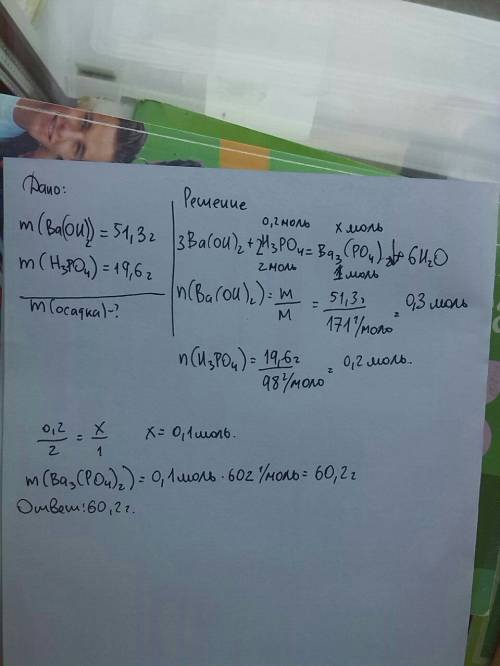 Дано:
m(Ba(OH)₂) = 51,3 г
m(H₃PO₄) = 19,6 г
m(осадка) - ?
Решение
0,2 моль x моль
3Ba(OH)₂ + 2H₃PO₄ = Ba₃(PO₄)₂↓ + 6H₂O
2 моль 1 моль
n(Ba(OH)₂) = m/M = 51,3 г / 171 г/моль = 0,3 моль
n(H₃PO₄) = 19,6 г / 98 г/моль = 0,2 моль.
0,2/2 = x/1 x = 0,1 моль.
m(Ba₃(PO₄)₂) = 0,1 моль · 602 г/моль = 60,2 г
Ответ: 60,2 г.